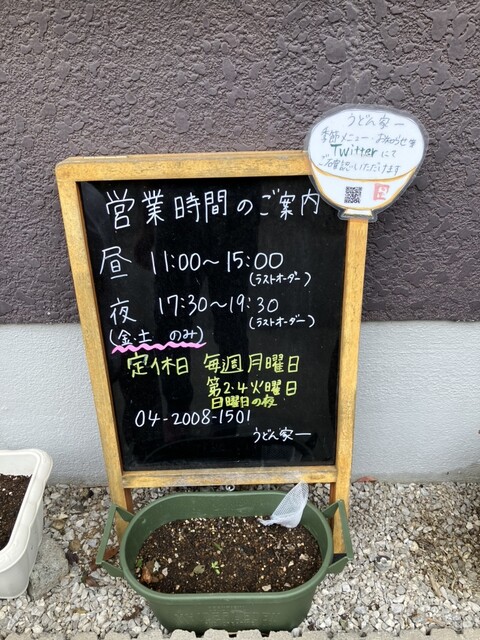 うどん家一
季節メニュー・お知らせを
Twitterにて
ご確認いただけます
営業時間のご案内
昼 11:00〜15:00
(ラストオーダー)
夜 17:30〜19:30
(金土 のみ) (ラストオーダー)
定休日 毎週月曜日
第2.4火曜日
日曜日の夜
04-2008-1501
うどん家一